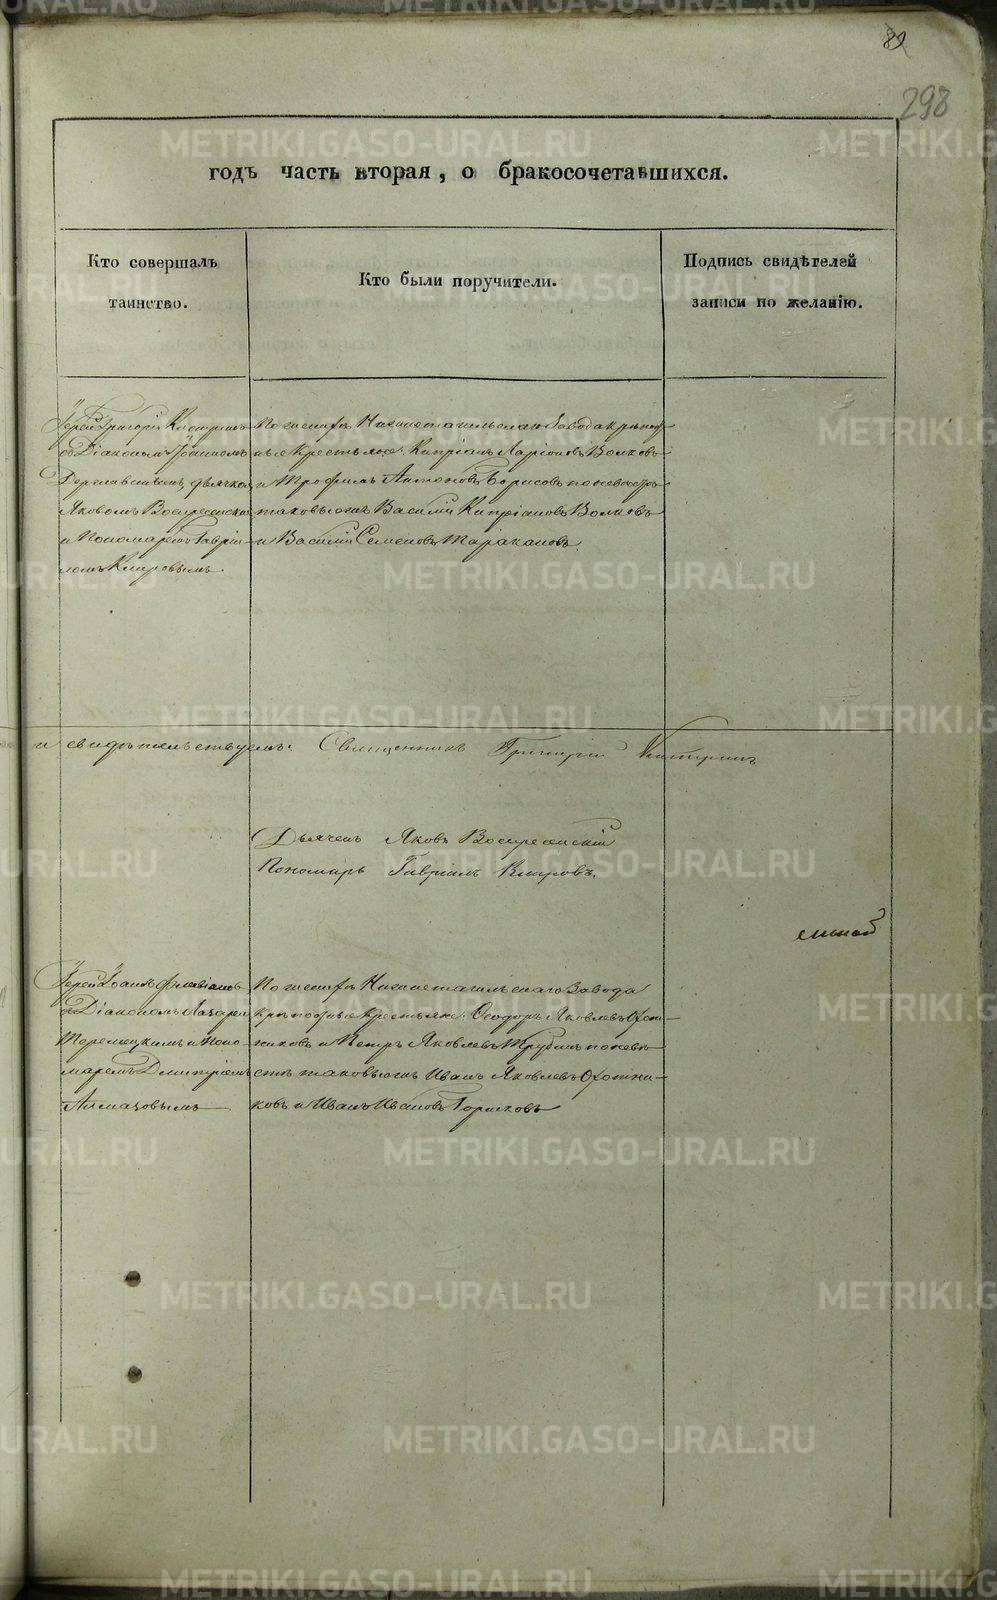 89
298
годъ часть вторая, о бракосочетавшихся.
Кто совершалъ таинство.
Кто были поручители.
Подпись свидѣтелей записи по желанію.
Іерей Григорій
съ Діакономъ Іоанномъ
дьячкомъ
Яковомъ Воскресенскимъ
и Пономаремъ Гаврі-
ломъ Кипровымъ.
По женихѣ Нижнетагильскаго Завода крѣпост-
ные крестьяне: Кипріянъ Ларіоновъ Волковъ
и Трофимъ Антоновъ Борисовъ по невѣстѣ
таковыежъ Василій Кипріановъ Волковъ
и Василій Семеновъ Таракановъ.
и свидѣтельствуемъ: Священникъ Григорій
Дьячекъ Яковъ Воскресенскій
Пономарь Гавріилъ Кипровъ.
Іерей Іоаннъ Флавіановъ
съ Діакономъ Лазаремъ
и Поно-
маремъ Димитріемъ
Алмазовымъ
По женихѣ Нижнетагильскаго Завода
крѣпостные крестьяне: Ѳеодоръ Яковлевъ Охот-
никовъ и Петръ Яковлевъ Трубинъ по невѣ-
стѣ таковыежъ Иванъ Яковлевъ Охотни-
ковъ и Иванъ Ивановъ Горшковъ
METRIKI.GASO-URAL.RU